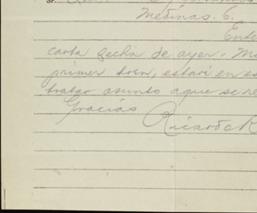 Medinas. C.
Ente
carta fecha de ayer. Ma
primer tren, estaré en es
tratar asunto a que se re
Gracias
Ricardo R